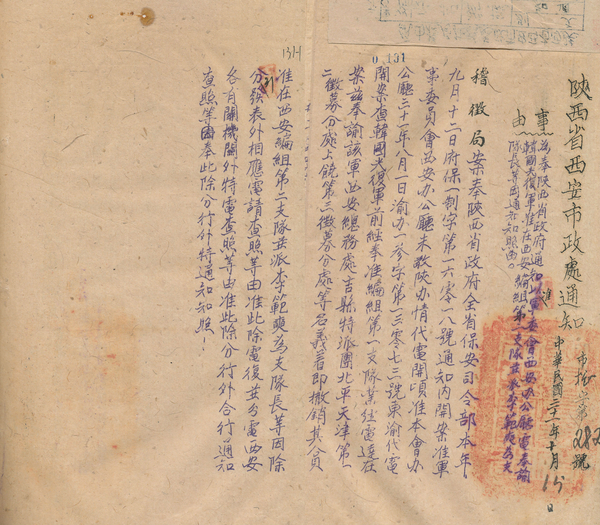 陝西省西安市政處通知
市招字第282號
中華民國三十一年十月15日
事由
為奉陝西省政府通知以准軍委會西安辦公廳電奉諭
韓國光復軍准在西安編組第二支隊並派李範奭為支
隊長等因通知知照由。
稽徵局案奉陝西省政府全省保安司令部本年
九月十二日府保一制字第一六零一八號通知內開案准軍
事委員會西安辦公廳未敬陝办情代電開頃准本會办
公廳三十一年八月一日渝办一參字第一三零七三號東渝代電
開案查韓國光復軍前經奉准編組第一支隊業經電達在
案茲奉諭該軍西安總務處吉縣特派團北平天津第一
二徵募分處上饒第三徵募分處等名義着即撤銷其人員
准在西安編組第二支隊並派李範奭為支隊長等因除
分令表外相應電請查照等由准此除電復並分電西安
各有關機關外特電查照等由准此除分行外合行通知
查照等因奉此除分行外特通知知照！
131
0.131